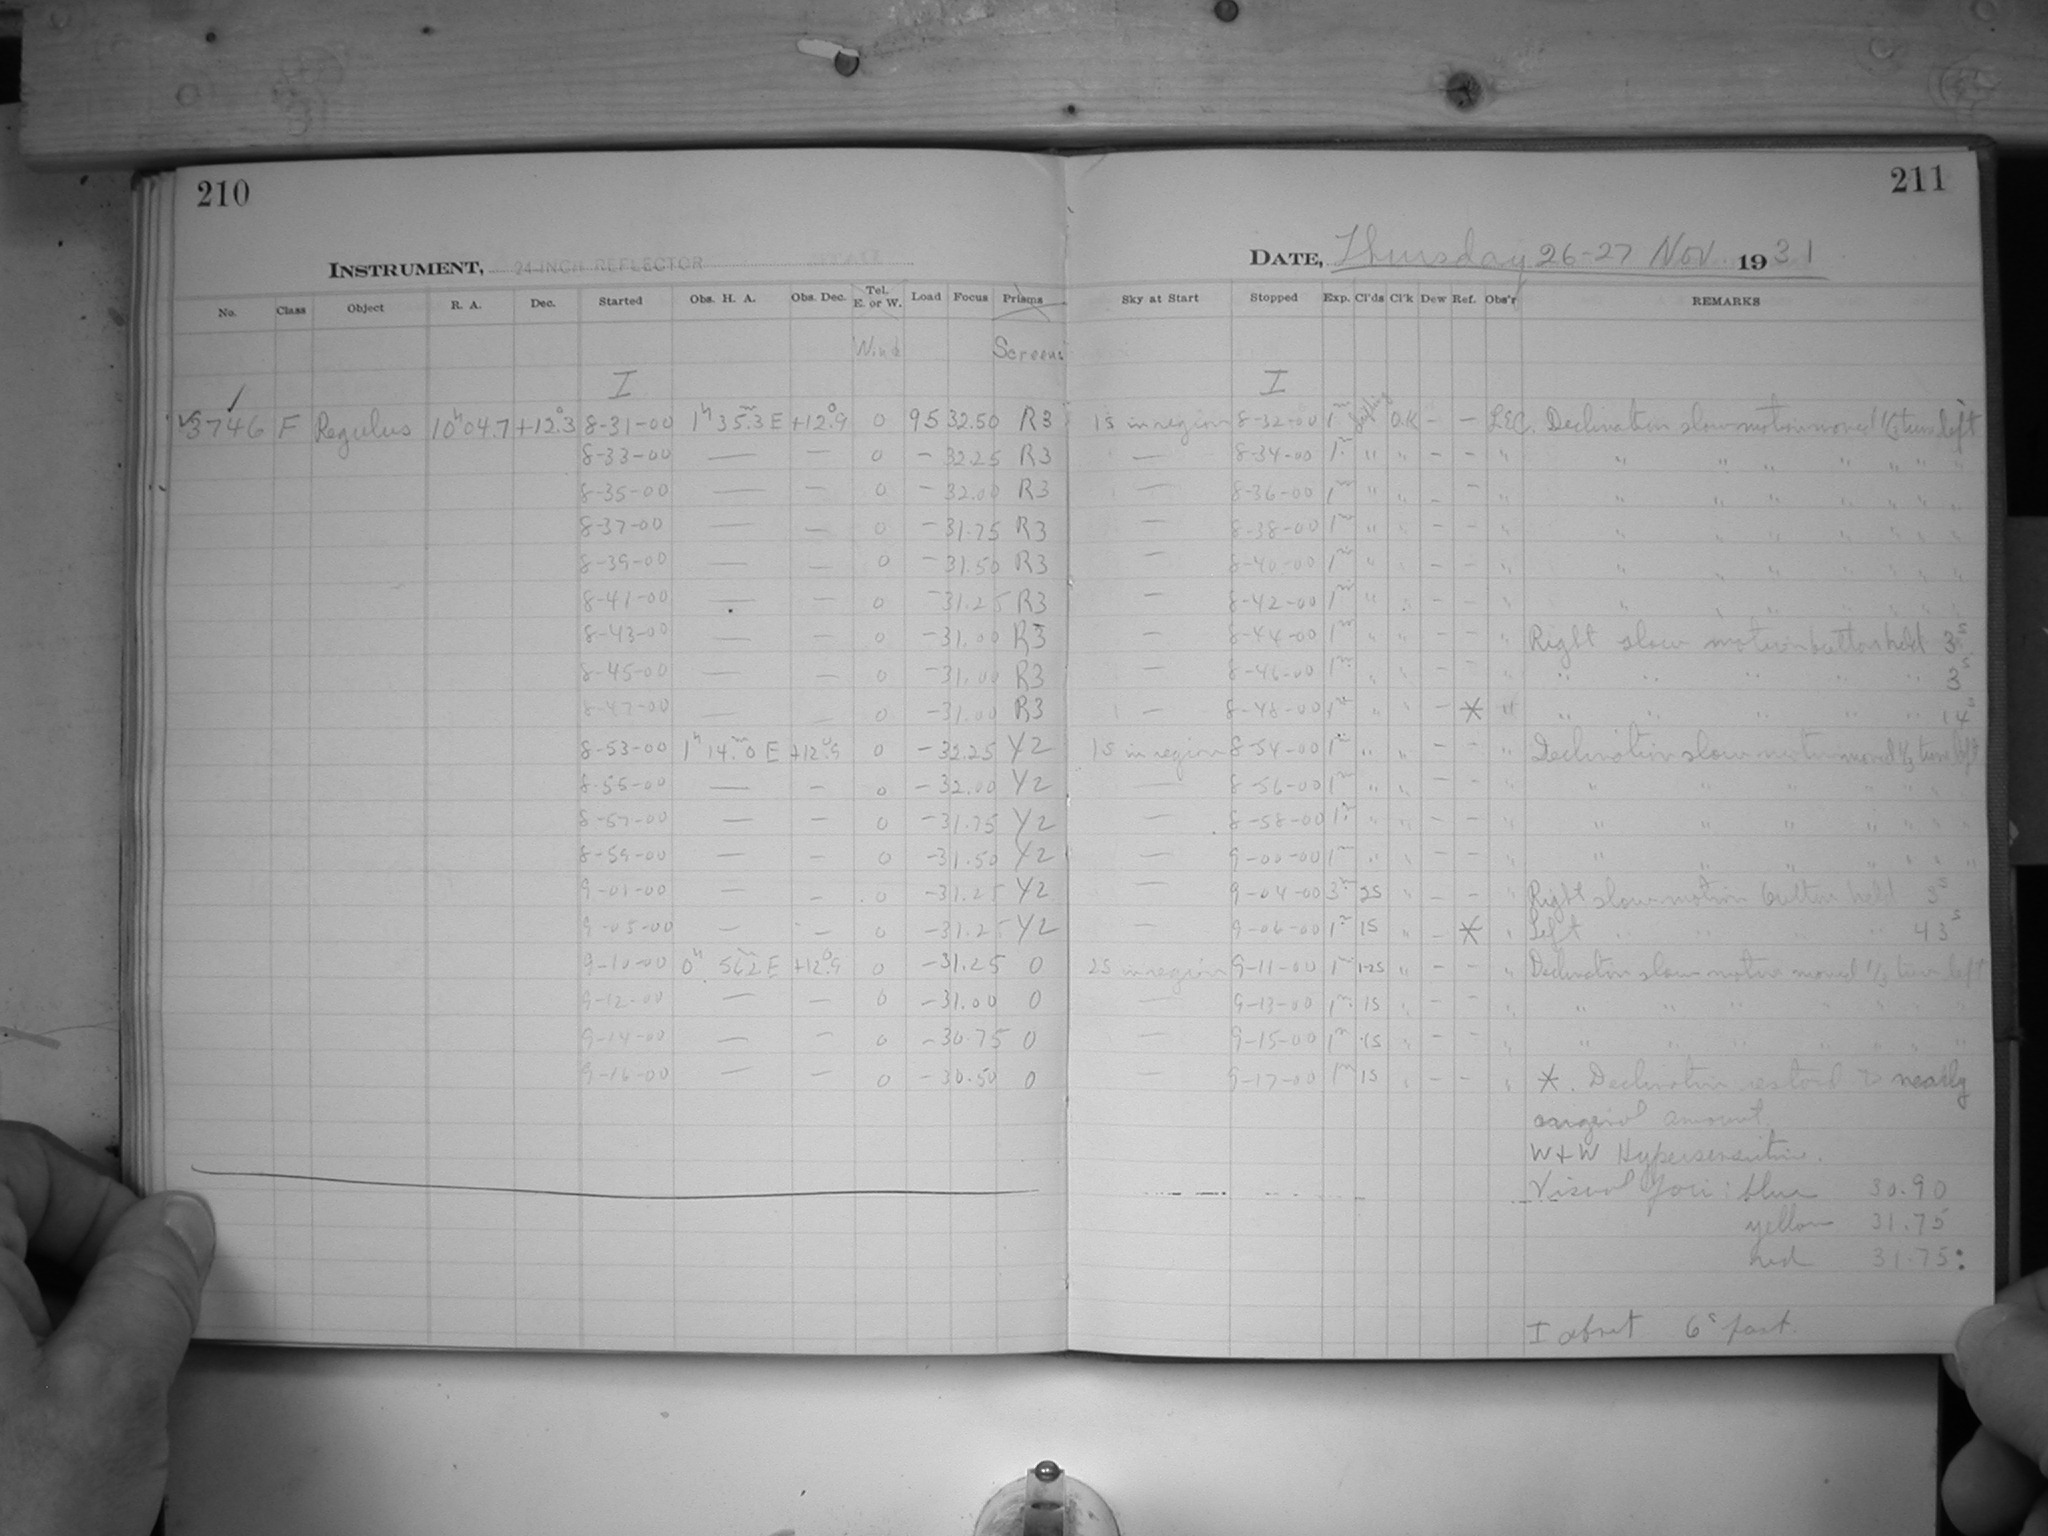 210
211
INSTRUMENT, 24-INCH REFLECTOR
DATE, Thursday 26-27 Nov 1931
No. Class Object R. A. Dec. Started Obs. H. A. Obs. Dec. Tel. E. or W. Load Focus Prisms Sky at Start Stopped Exp. Cl'ds Cl'k Dew Ref. Obs'r REMARKS
Wind Screens
I I
✓3746 F Regulus 10h04.7 +12°.3 8-31-00 1h 35m.3 E +12°.9 0 95 32.50 R3 1S in region 8-32-00 1m O.K - - L.E.C. Declination slow motion moved 1/3 turn left
8-33-00 — — 0 - 32.25 R3 — 8-34-00 1m " " - - " " " " " " " "
8-35-00 — — 0 - 32.00 R3 — 8-36-00 1m " " - - " " " " " " " "
8-37-00 — — 0 - 31.75 R3 — 8-38-00 1m " " - - " " " " " " " "
8-39-00 — — 0 - 31.50 R3 — 8-40-00 1m " " - - " " " " " " " "
8-41-00 — — 0 - 31.25 R3 — 8-42-00 1m " " - - " " " " " " " "
8-43-00 — — 0 - 31.00 R3 — 8-44-00 1m " " - - " Right slow motion button held 3s
8-45-00 — — 0 - 31.00 R3 — 8-46-00 1m " " - - " " " " " " 3s
8-47-00 — — 0 - 31.00 R3 — 8-48-00 1m " " - * " " " " " " 14s
8-53-00 1h 14m.0 E +12°.9 0 - 32.25 Y2 1S in region 8-54-00 1m " " - - " Declination slow motion moved 1/3 turn left
8-55-00 — — 0 - 32.00 Y2 — 8-56-00 1m " " - - " " " " " " " "
8-57-00 — — 0 - 31.75 Y2 — 8-58-00 1m " " - - " " " " " " " "
8-59-00 — — 0 - 31.50 Y2 — 9-00-00 1m " " - - " " " " " " " "
9-01-00 — — 0 - 31.25 Y2 — 9-04-00 3m 2S " - - " Right slow motion button held 3s
9-05-00 — — 0 - 31.25 Y2 — 9-06-00 1m 1S " - * " Left " " " " 43s
9-10-00 0h 56.2 E +12°.9 0 - 31.25 0 2S in region 9-11-00 1m 1-2S " - - " Declination slow motion moved 1/3 turn left
9-12-00 — — 0 - 31.00 0 — 9-13-00 1m 1S " - - " " " " " " " "
9-14-00 — — 0 - 30.75 0 — 9-15-00 1m 1S " - - " " " " " " " "
9-16-00 — — 0 - 30.50 0 — 9-17-00 1m 1S " - - " *. Declination restored to nearly
original amount.
W+W Hypersensitive.
Visual foci: blue 30.90
yellow 31.75
red 31.75:
I about 6s fast.